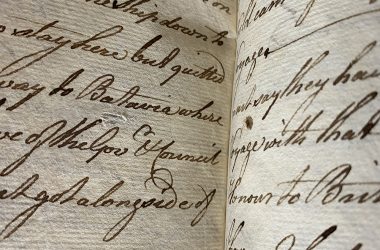 Ship down to
stay here but quitted
way to Batavia where
ve of the Gov.r & Council
at got alongside of
dream
voyages
say they hav
age with that
onour to Brit